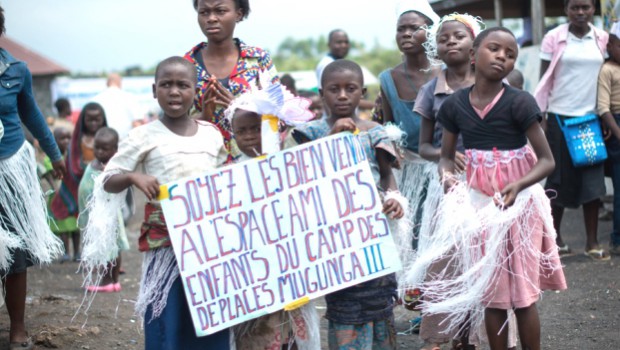 SOYEZ LES BIENVENU
A L'ESPACE AMI DES
ENFANTS DU CAMP DES
DEPLACES MUGUNGA III